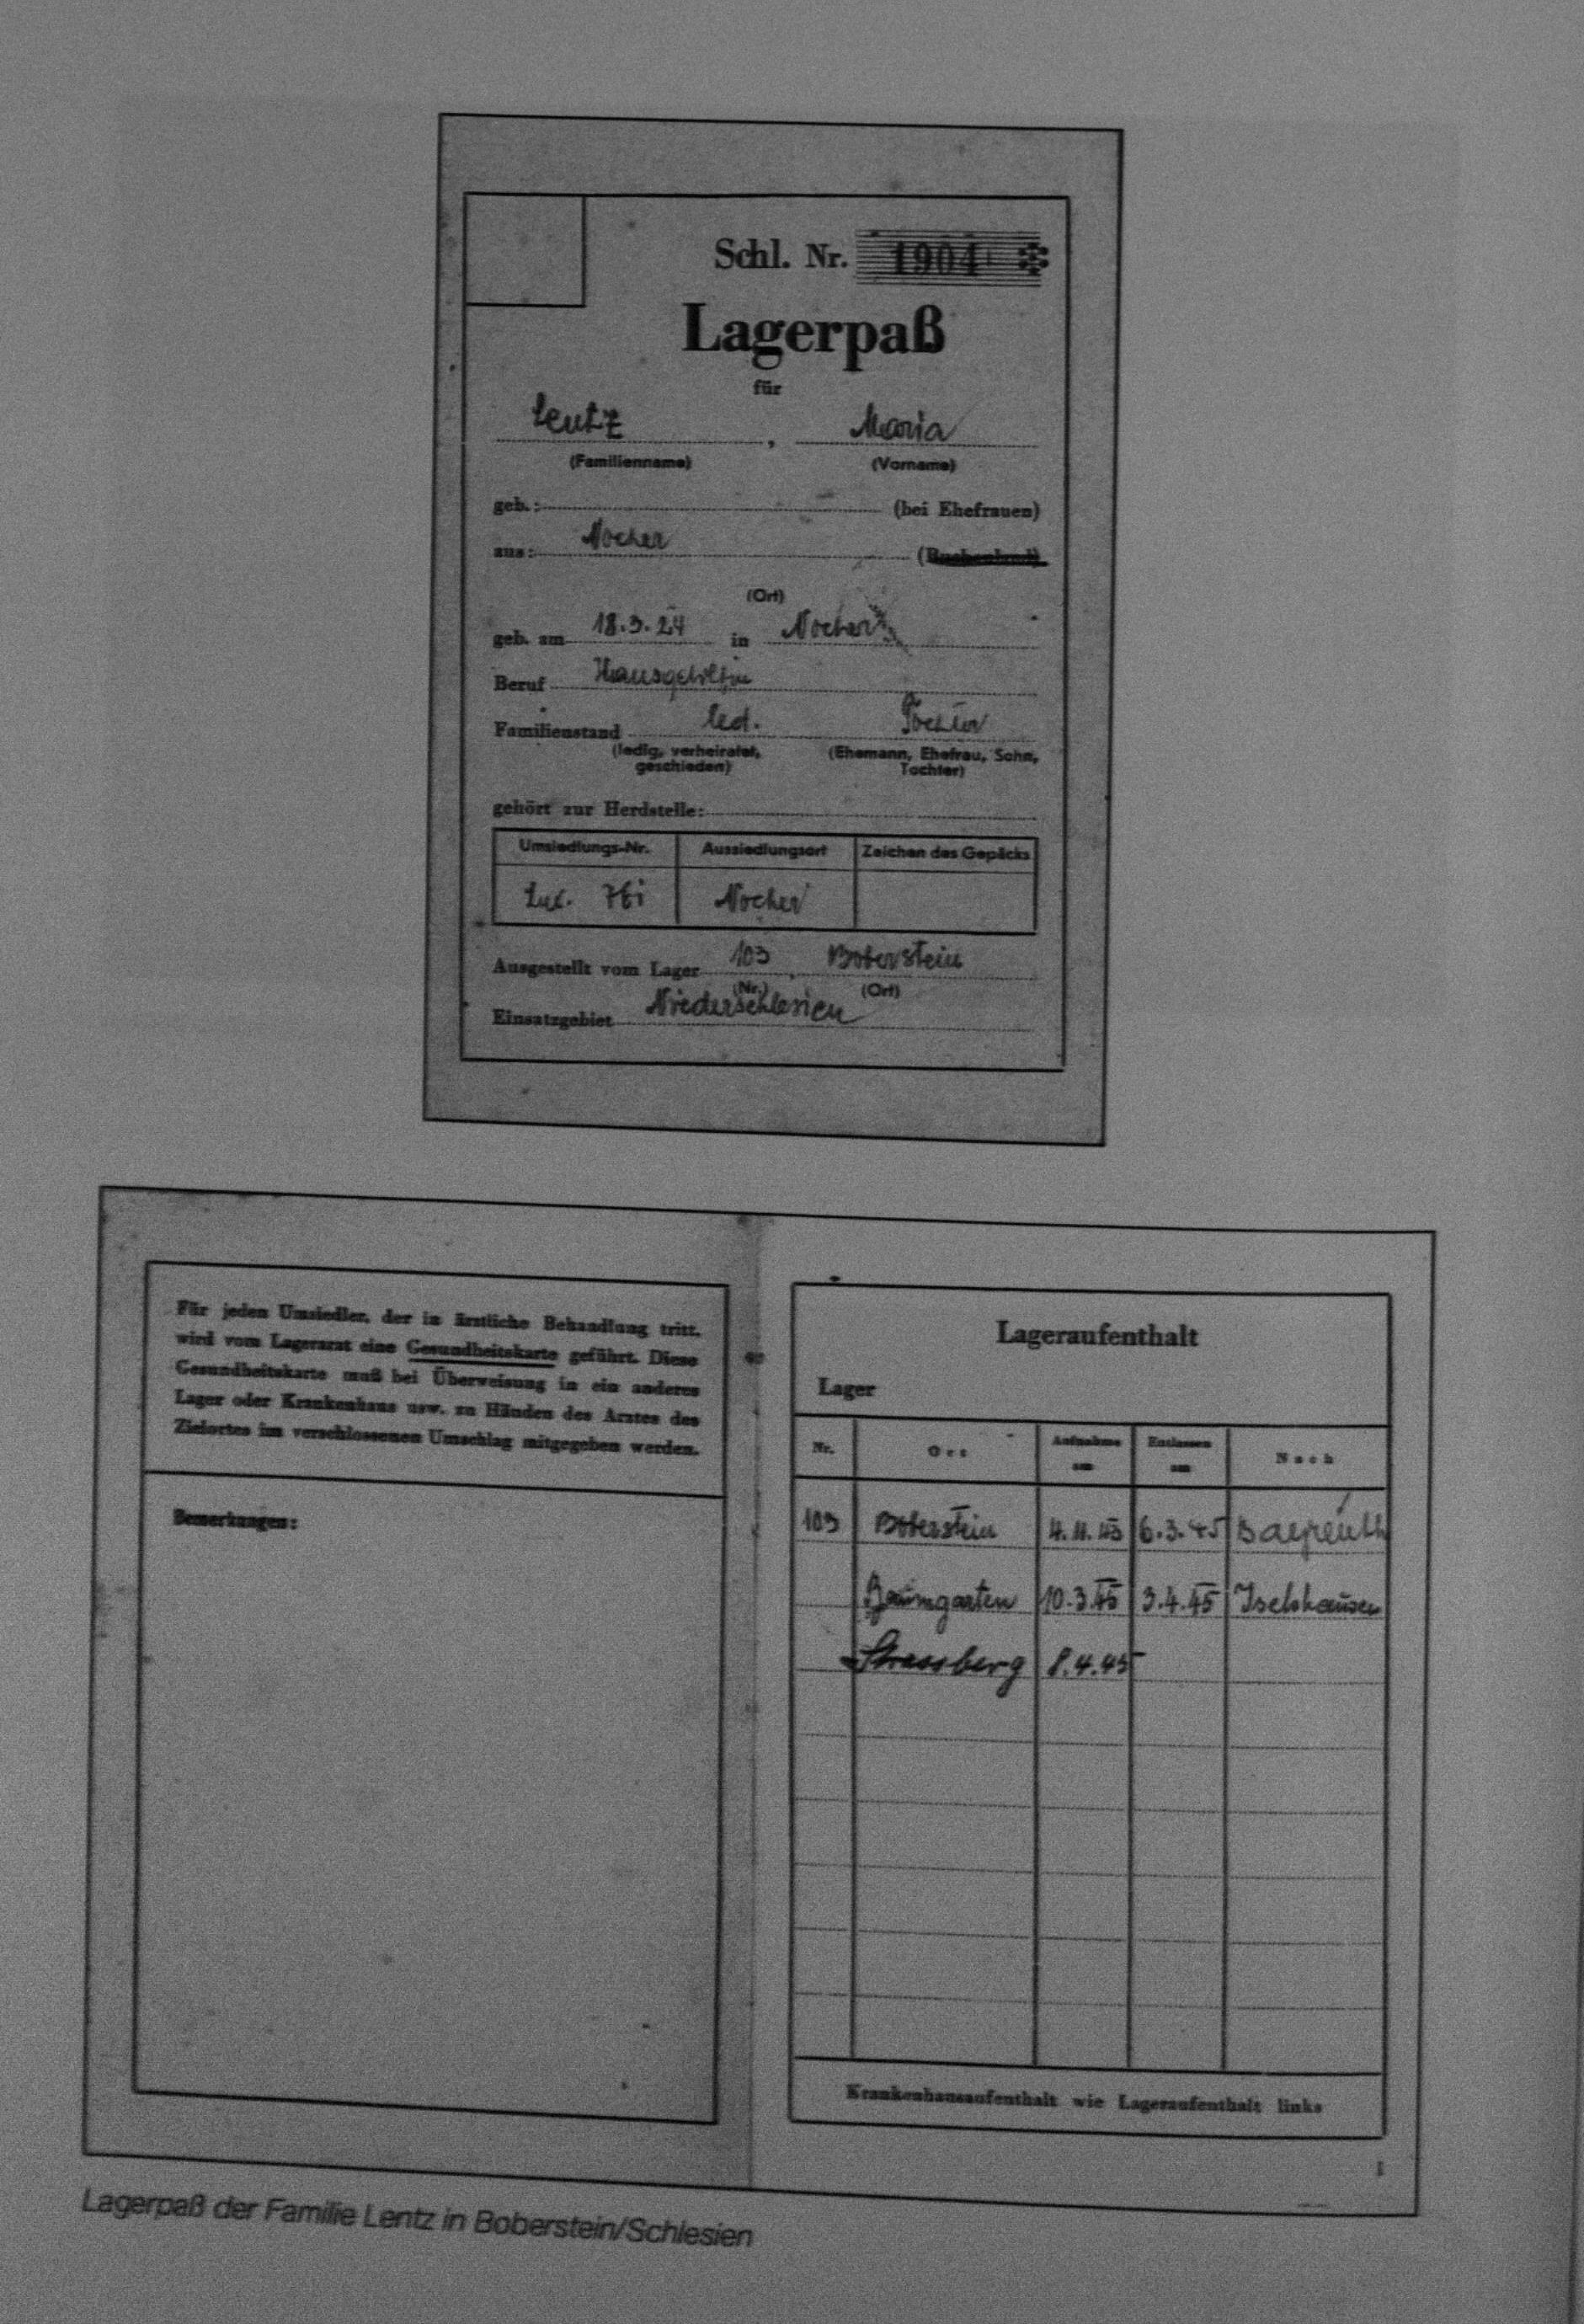 Schl. Nr. 1904 ✻
Lagerpaß
für
Lentz , Maria
(Familienname) (Vorname)
geb.: (bei Ehefrauen)
aus: Nocher
(Ort)
geb. am 18.3.24 in Nocher
Beruf Hausgehilfin
Familienstand led. Tochter
(ledig, verheiratet, geschieden) (Ehemann, Ehefrau, Sohn, Tochter)
gehört zur Herdstelle:
Umsiedlungs-Nr. Aussiedlungsort Zeichen des Gepäcks
Lux. Nocher
Ausgestellt vom Lager 103 , Boberstein
(Nr.) (Ort)
Einsatzgebiet Niederschlesien
Für jeden Umsiedler, der in ärztliche Behandlung tritt,
wird vom Lagerarzt eine Gesundheitskarte geführt. Diese
Gesundheitskarte muß bei Überweisung in ein anderes
Lager oder Krankenhaus usw. zu Händen des Arztes des
Zielortes im verschlossenen Umschlag mitgegeben werden.
Bemerkungen:
Lageraufenthalt
Lager
Nr. Ort Aufnahme am Entlassen am Nach
103 Boberstein 4.11.43 6.3.45 Bayreuth
Baumgarten 10.3.45 3.4.45 Iselshausen
Strassberg 8.4.45
Krankenhausaufenthalt wie Lageraufenthalt links
Lagerpaß der Familie Lentz in Boberstein/Schlesien